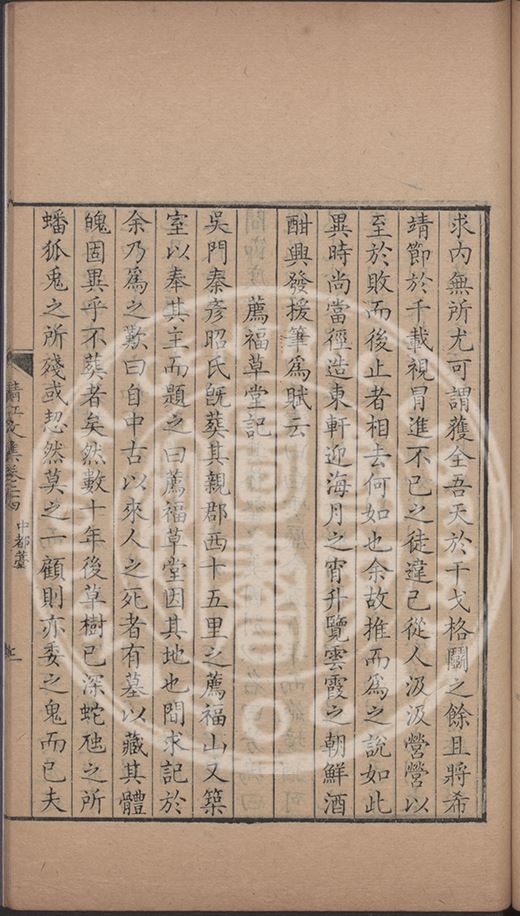 求內無所尤可謂獲全吾天於干戈格鬭之餘且將希
靖節於千載視冒進不已之徒違己從人汲汲營營以
至於敗而後止者相去何如也余故推而爲之說如此
異時尚當徑造東軒迎海月之宵升覽雲霞之朝鮮酒
酣興發援筆爲賦云
薦福草堂記
吳門秦彥昭氏旣葬其親郡西十五里之薦福山又築
室以奉其主而題之曰薦福草堂因其地也間求記於
余乃爲之歎曰自中古以來人之死者有墓以藏其體
魄固異乎不葬者矣然數十年後草樹已深蛇虺之所
蟠狐兎之所殘或恝然莫之一顧則亦委之鬼而已夫
清江文集卷二四
中都藁